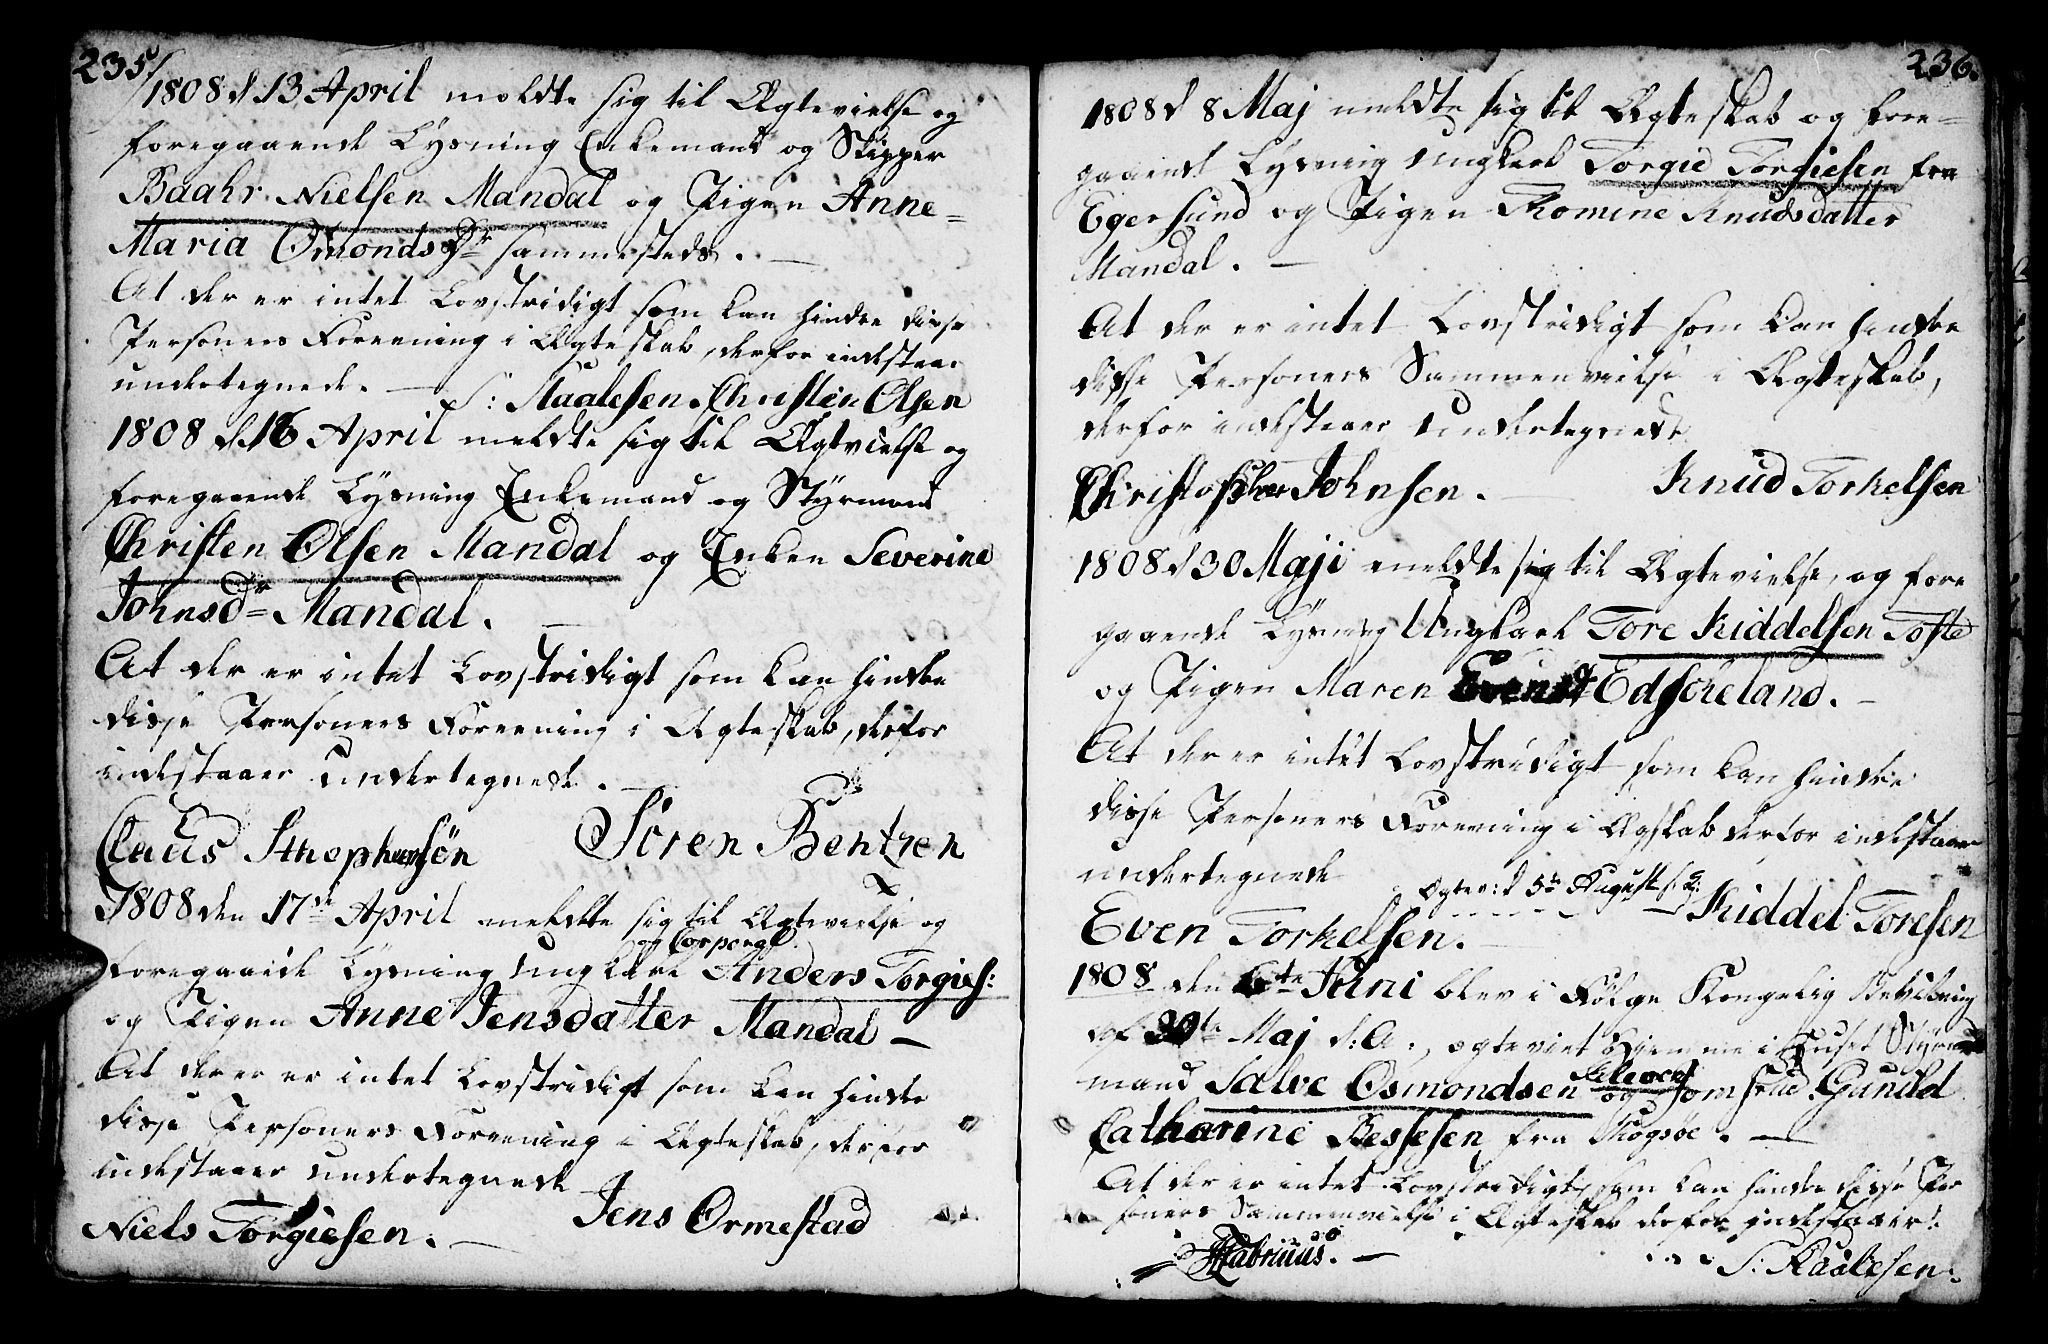 235/
1808 d 13 April meldte sig til Ægtevielse og
foregaaende Lysning Enkemand og Skipper
Baahr Nielsen Mandal og Pigen Anne=
Maria Osmondsdr sammesteds.
At der er intet Lovstridigt som kan hindre disse
Personers Foreening i Ægteskab, derfor indestaaer
undertegnede. — S: Aaalesen. Christen Olsen
1808 d 16 April meldte sig til Ægtvielse og
foregaaende Lysning Enkemand og Styrmand
Christen Olsen Mandal og Enken Severine
Johnsdr= Mandal.
At der er intet Lovstridigt som kan hindre
disse Personers Foreening i Ægteskab, derfor
indestaaer undertegnede.
Claus Sthephensön Sören Bentzen
1808 den 17de April meldte sig til Ægtevielse og
foregaaende Lysning Ungkarl og Corporal Anders Torgies:
og Pigen Anne Jensdatter Mandal —
At der er intet Lovstridigt som kan hindre
disse Personers Foreening i Ægteskab, derfor
indestaaer undertegnede
Niels Torgiesen. — Jens Ormestad
236.
1808 d 8 Maj meldte sig til Ægteskab og fore=
gaaende Lysning Ungkarl Torgie Torgiesen fra
Egersund og Pigen Thomine Knudsdatter
Mandal. —
At der er intet Lovstridigt som kan hindre
disse Personers Sammenvielse i Ægteskab,
derfor indestaaer undertegnede
Christopher Johnsen. — Knud Torkelsen
1808 d 30 Maji meldte sig til Ægtevielse, og fore
gaaende Lysning Ungkarl Tore Kiddelsen Tofte
og Pigen Maren Evensd Edsøreland. —
At der er intet Lovstridigt som kan hindre
disse Personers Foreening i Ægskab derfor indestaaer
undertegnede
Ægtev: d 5te August
Even Torkelsen. — Kiddel Toresen
1808 den 6te Juni blev i Følge Kongelig Bevilning
af 20te Maj d: A:, ægteviet hiemme i Huset Styr
mand Salve Osmondsen og Jomfrue Gunild
Catharine Bessesen fra Skogsøe. —
At der er intet Lovstridigt, som kan hindre disse Per
soners Sammenvielse i Ægteskab derfor indestaaer:
Fabricius. — S: Aaalesen.